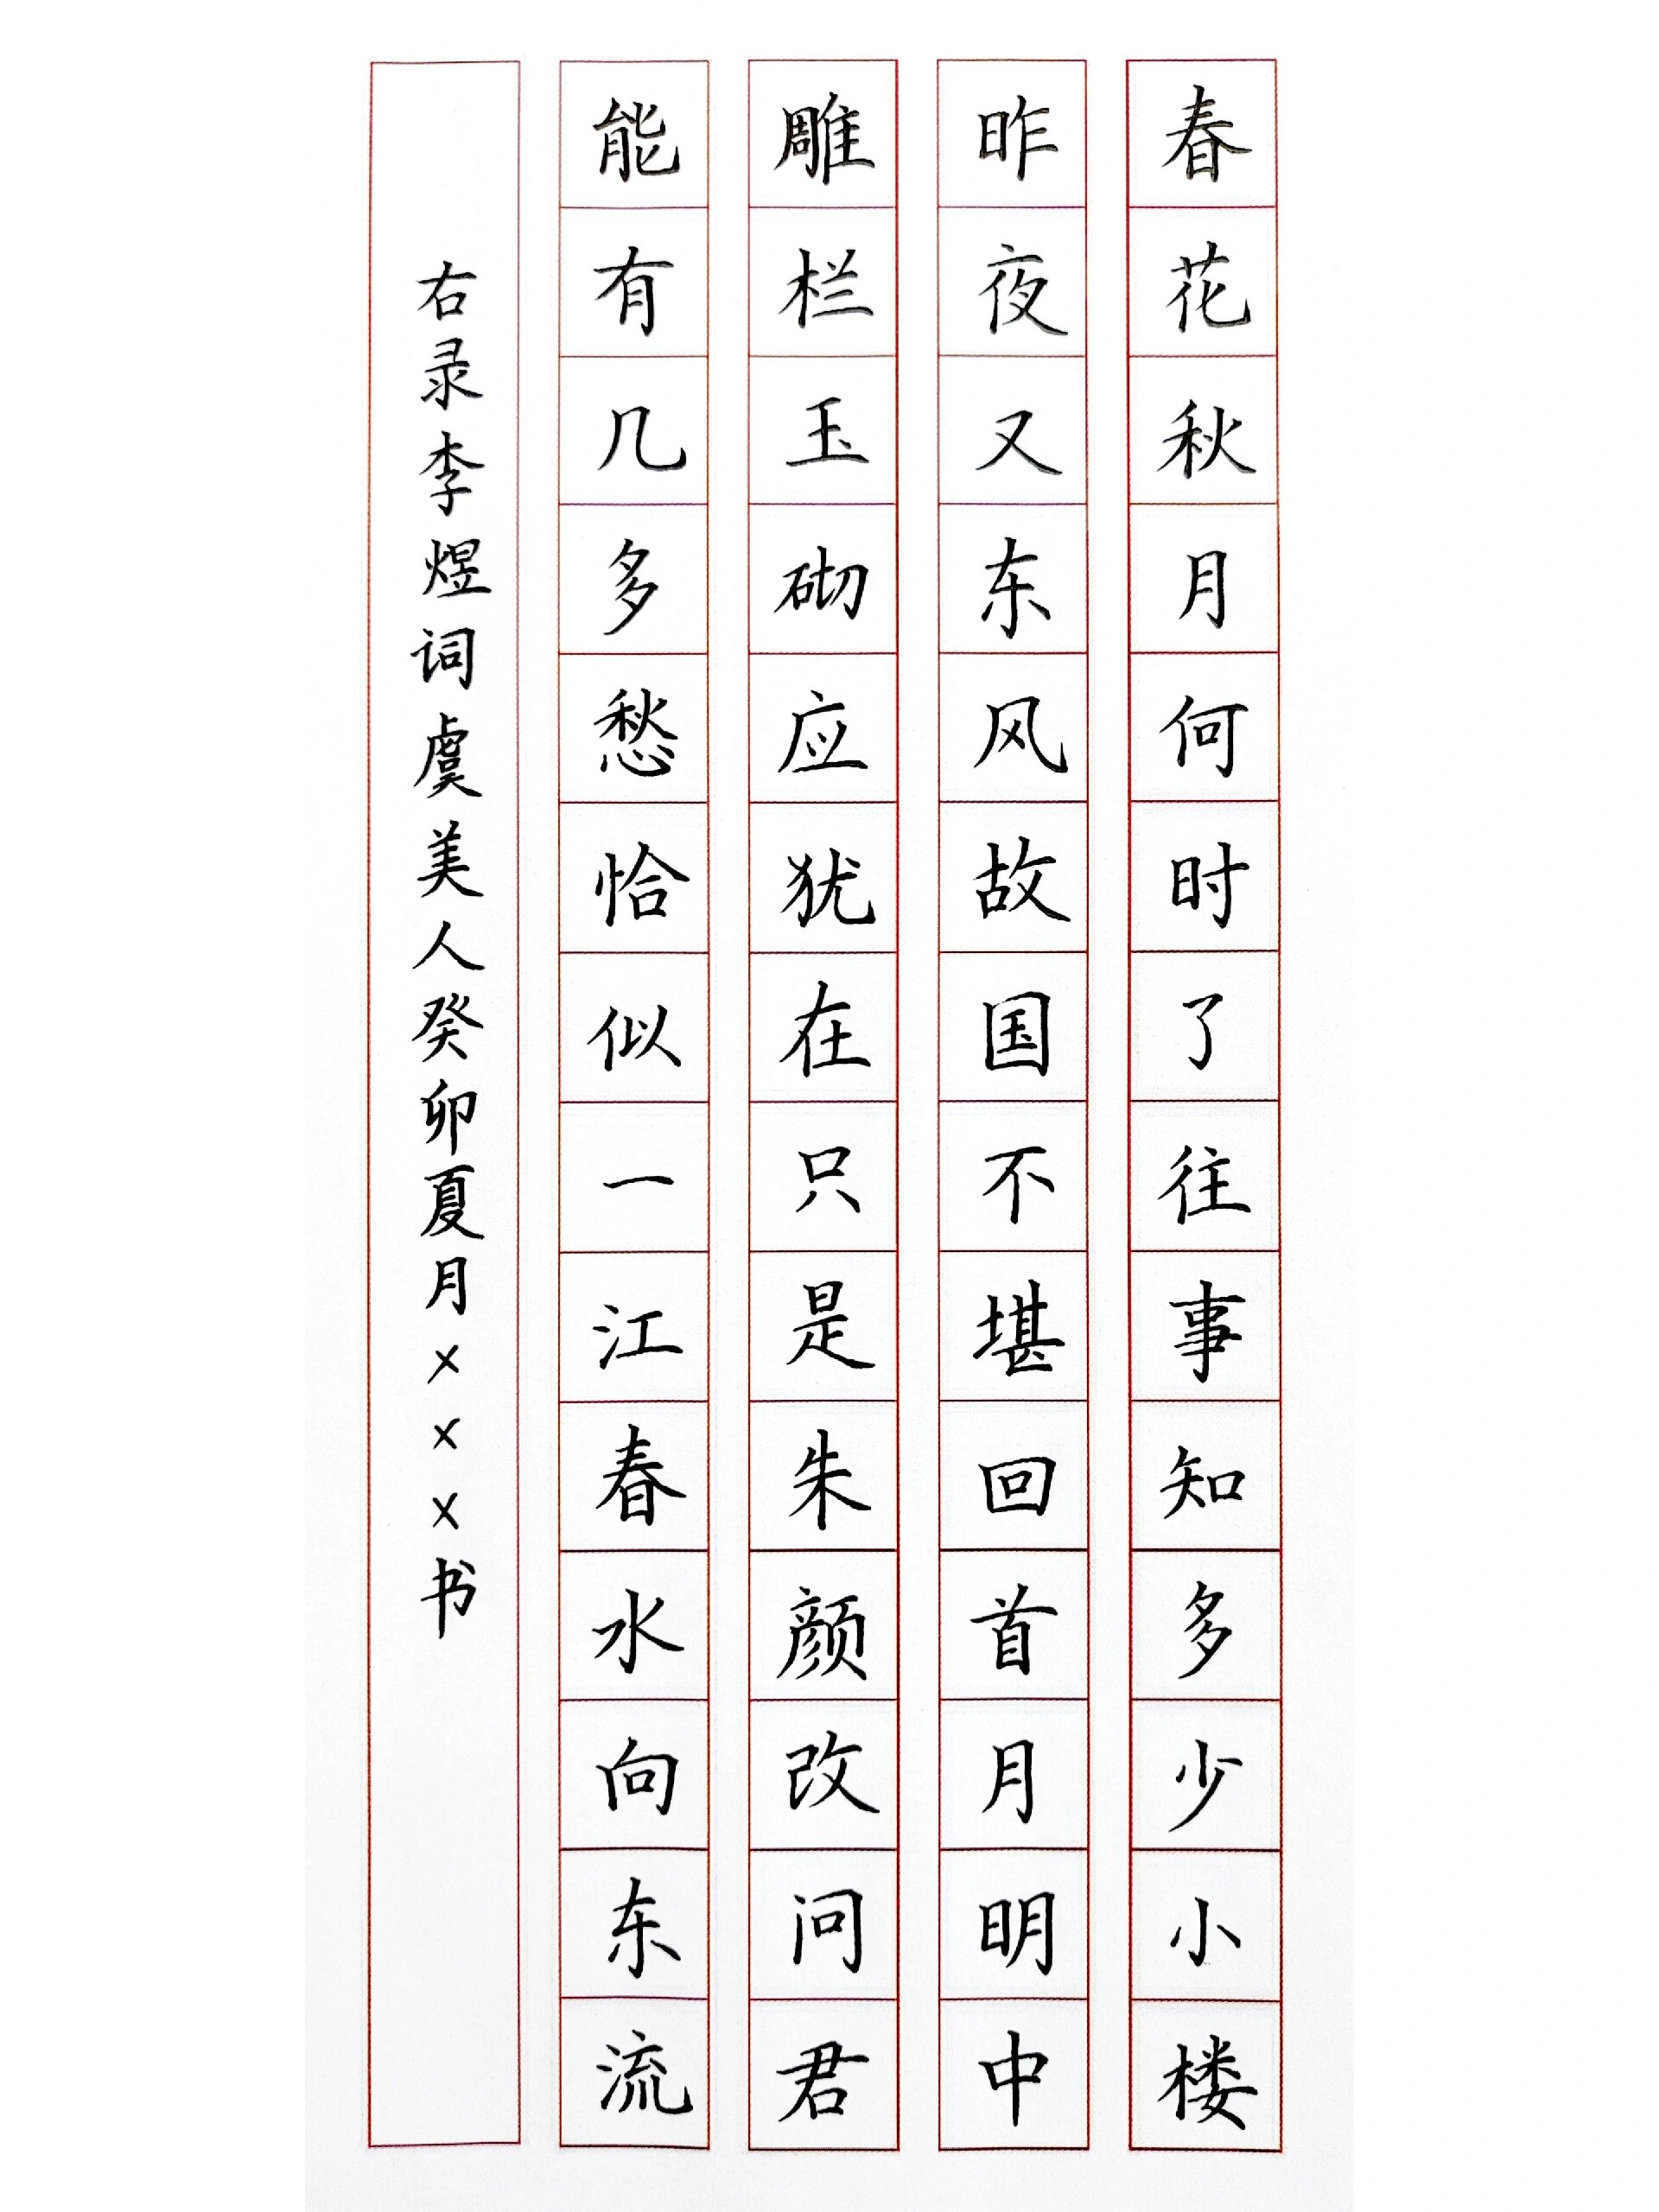 春花秋月何时了往事知多少小楼
昨夜又东风故国不堪回首月明中
雕栏玉砌应犹在只是朱颜改问君
能有几多愁恰似一江春水向东流
右录李煜词虞美人癸卯夏月×××书